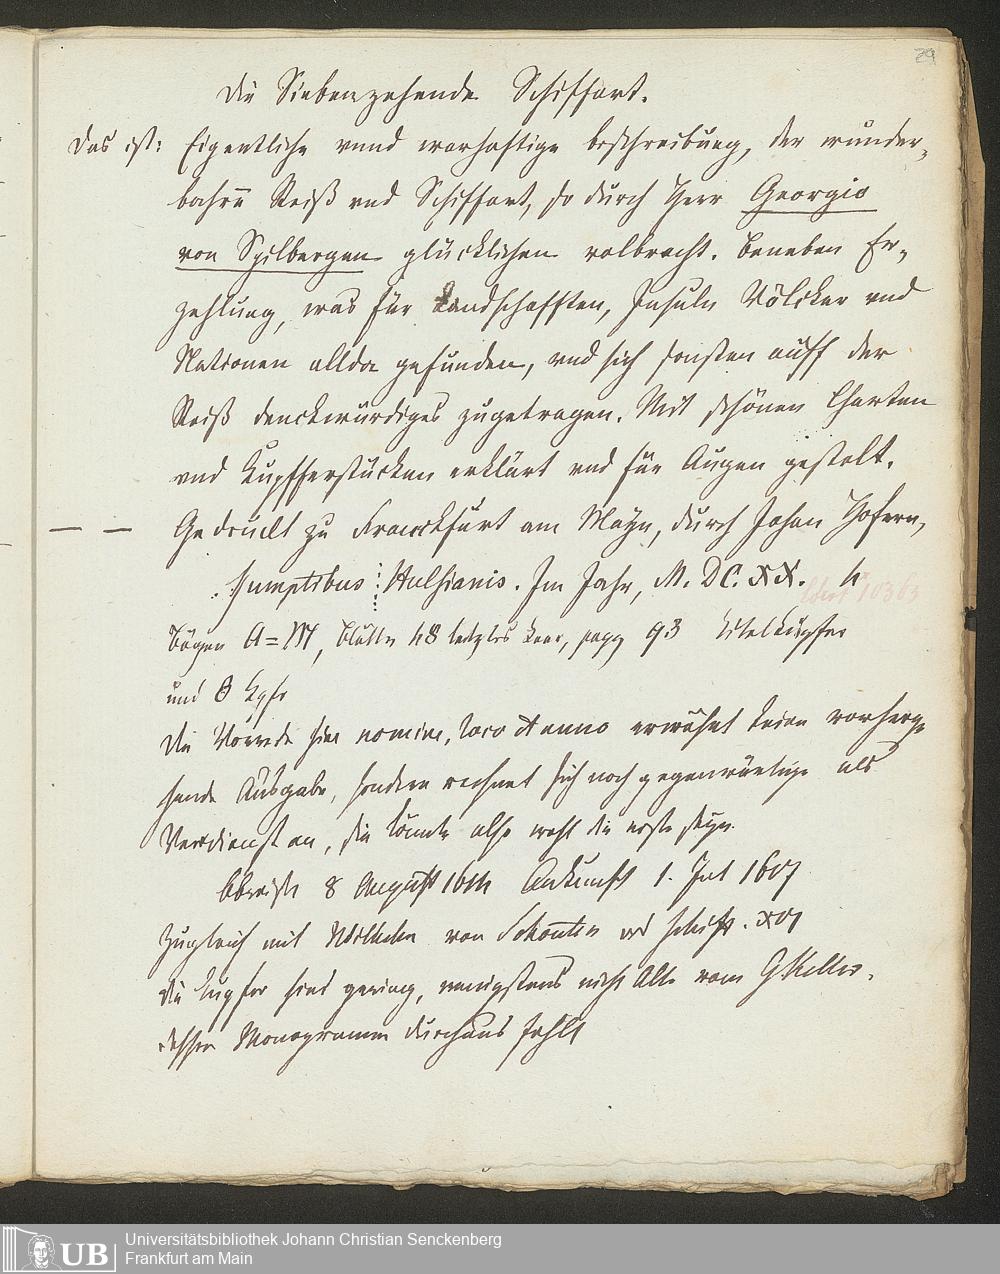 29
Die Siebenzehende Schiffart.
Das ist: Eigentliche vnnd warhafftige beschreibung, der wunder-
bahrn Reiß vnd Schiffart, so durch Herr Georgio
von Spilbergen glücklichen volbracht. Beneben Er-
zehlung, was für Landschafften, Insuln Völcker vnd
Nationen allda gefunden, vnd sich sonsten auff der
Reiß denckwürdiges zugetragen. Mit schönen Charten
vnd Kupfferstücken erklärt vnd für Augen gestelt.
Gedruckt zu Franckfurt am Mayn, durch Johan Hofern,
Sumptibus Hulsianis. Im Jahr, M. DC. XX. 4
Bögen A=M, Blätter 48 letztes leer, pagg 93 Titelkupfer
und 8 Kpfr
Die Vorrede sine nomine, loco & anno erwähnt keine vorherge-
hende Ausgabe, sondern rechnet sich noch gegenwärtige als
Verdienst an, sie könnte also wohl die erste seyn.
Abreise 8 August 1614 Ankunft 1. Jul 1617
Zugleich mit Wilhelm von Schouten Schiff. XVI
die Kupfer sind gering, wenigstens nicht Alle vom GKeller.
dessen Monogramm durchaus fehlt
UB
Universitätsbibliothek Johann Christian Senckenberg
Frankfurt am Main